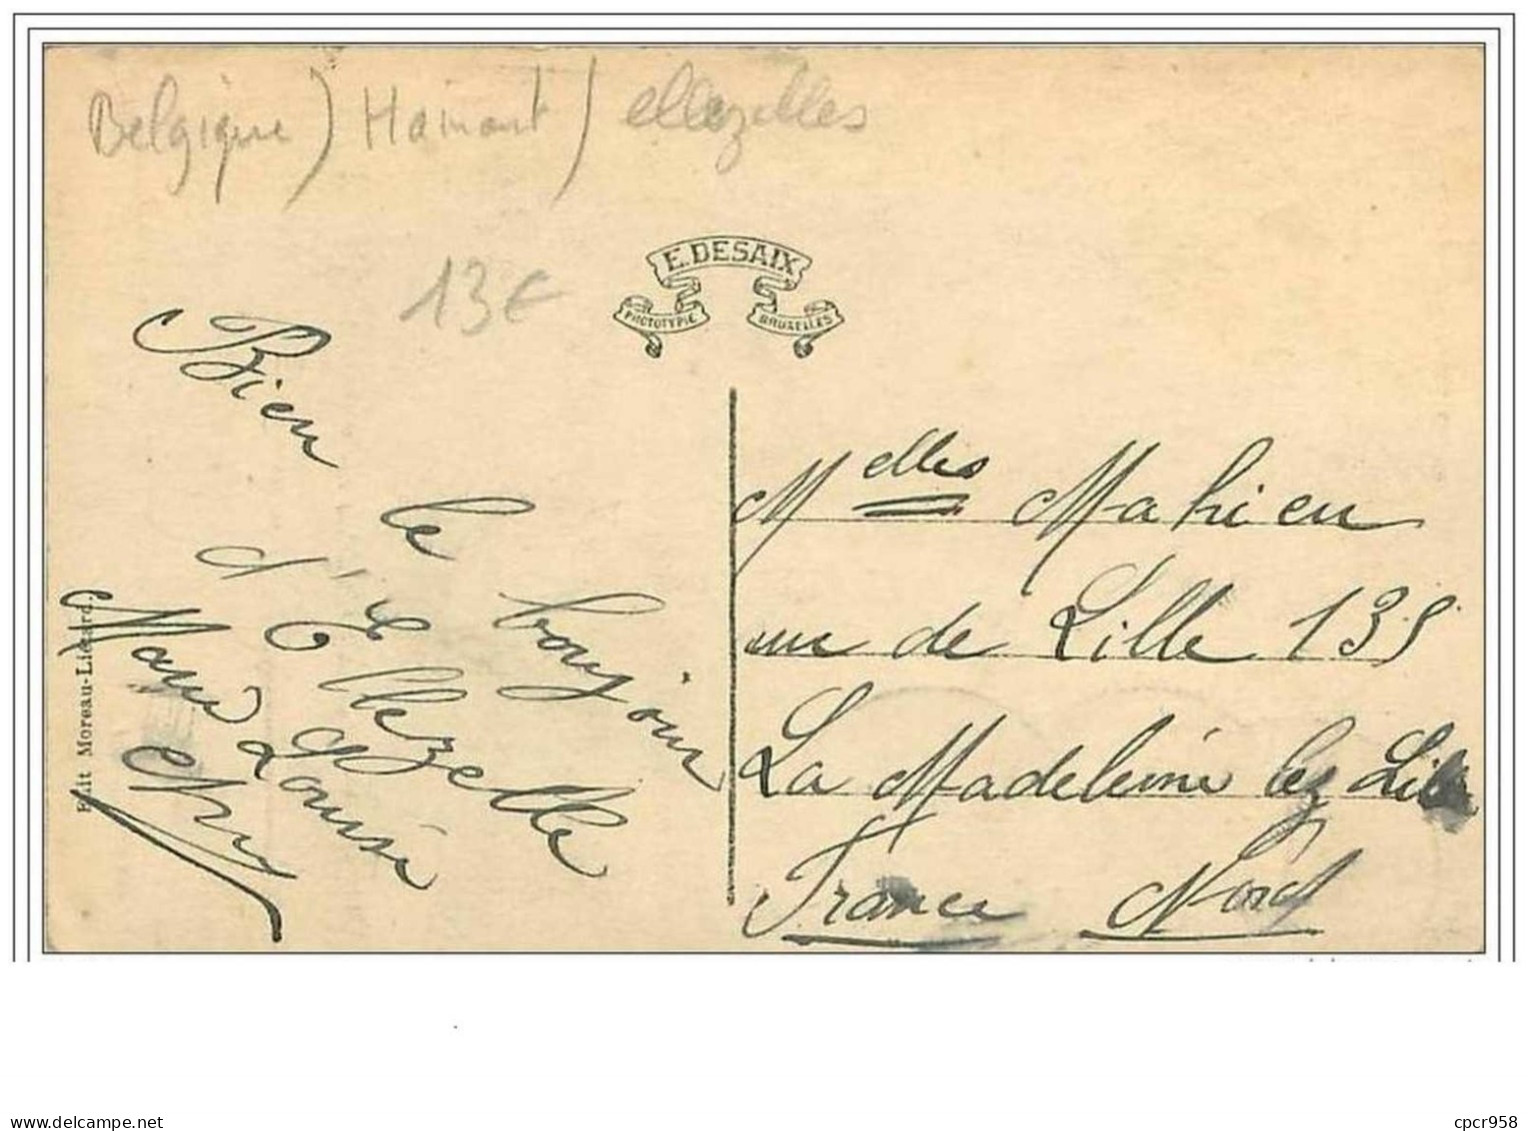 Belgique) Hainaut / ellezelles
13€
E. DESAIX
PHOTOTYPIE BRUXELLES
Bien
le bonjour
d'Ellezelle
Marie Louise
Melles Mahieu
rue de Lille 135
La Madeleine lez Lille
France Nord
Edit Moreau-Liénard.
cpcr958